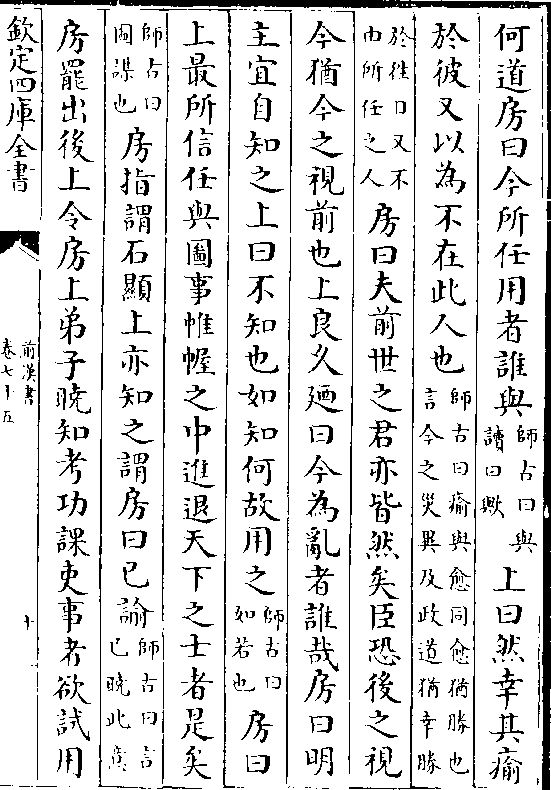 何道房曰今所任用者誰與師古曰與讀曰歟上曰然幸其瘉
於彼又以為不在此人也師古曰瘉與愈同愈猶勝也言今之災異及政道猶幸勝
於往日又不由所任之人房曰夫前世之君亦皆然矣臣恐後之視
今猶今之視前也上良久廼曰今為亂者誰哉房曰明
主宜自知之上曰不知也如知何故用之師古曰如若也房曰
上最所信任與圖事帷幄之中進退天下之士者是矣
師古曰圖謀也房指謂石顯上亦知之謂房曰已諭師古曰言已曉此意
房罷出後上令房上弟子曉知考功課吏事者欲試用
欽定四庫全書
前漢書
卷七十五
十